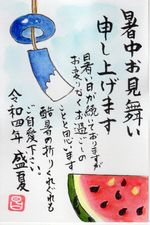 暑中お見舞い
申し上げます
暑い日が続いておりますが
お変りなくお過ごしの
ことと思います
酷暑の折りくれぐれも
ご自愛下さい
令和四年 盛夏